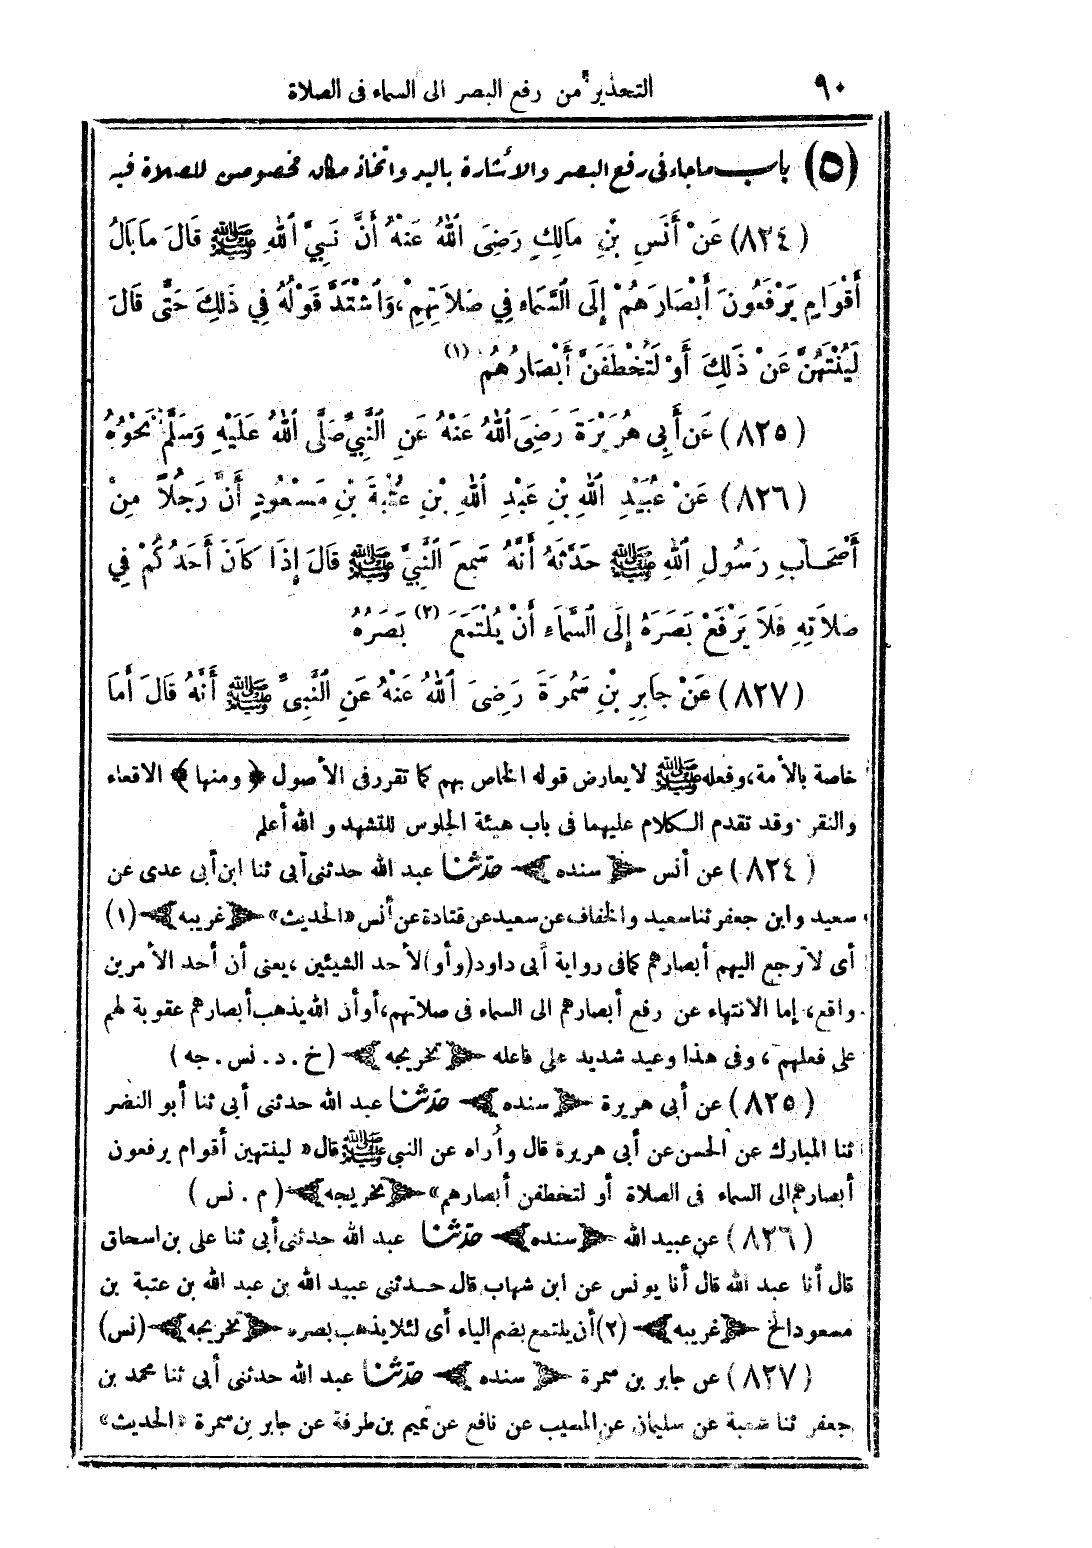 ٩٠ التحذير من رفع البصر الى السماء فى الصلاة
(٥) باب ماجاء فى رفع البصر والأشارة باليد واتخاذ مكان مخصوص للصلاة فيه
(٨٢٤) عَنْ أَنَسِ بْنِ مَالِكٍ رَضِىَ اللهُ عَنْهُ أَنَّ نَبِيَّ اللهِ ﷺ قَالَ مَا بَالُ
أَقْوَامٍ يَرْفَعُونَ أَبْصَارَهُمْ إِلَى السَّمَاءِ فِي صَلَاتِهِمْ، وَاشْتَدَّ قَوْلُهُ فِي ذَلِكَ حَتَّى قَالَ
لَيَنْتَهُنَّ عَنْ ذَلِكَ أَوْ لَتُخْطَفَنَّ أَبْصَارُهُمْ (١)
(٨٢٥) عَنْ أَبِي هُرَيْرَةَ رَضِىَ اللهُ عَنْهُ عَنِ النَّبِيِّ صَلَّى اللهُ عَلَيْهِ وَسَلَّمَ نَحْوُهُ
(٨٢٦) عَنْ عُبَيْدِ اللهِ بْنِ عَبْدِ اللهِ بْنِ عُتْبَةَ بْنِ مَسْعُودٍ أَنَّ رَجُلًا مِنْ
أَصْحَابِ رَسُولِ اللهِ ﷺ حَدَّثَهُ أَنَّهُ سَمِعَ النَّبِيَّ ﷺ قَالَ إِذَا كَانَ أَحَدُكُمْ فِي
صَلَاتِهِ فَلَا يَرْفَعْ بَصَرَهُ إِلَى السَّمَاءِ أَنْ يُلْتَمَعَ (٢) بَصَرُهُ
(٨٢٧) عَنْ جَابِرِ بْنِ سَمُرَةَ رَضِىَ اللهُ عَنْهُ عَنِ النَّبِىِّ ﷺ أَنَّهُ قَالَ أَمَا
خاصة بالأمة، وفعله ﷺ لا يعارض قوله الخاص بهم كما تقرر فى الأصول ﴿ومنها﴾ الاقعاء
والنقر وقد تقدم الكلام عليهما فى باب هيئة الجلوس للتشهد و الله أعلم
(٨٢٤) عن أنس ﴿سنده﴾ حدثنا عبد الله حدثنى أبى ثنا ابن أبى عدى عن
سعيد وابن جعفر ثنا سعيد والخفاف عن سعيد عن قتادة عن أنس «الحديث» ﴿غريبه﴾ (١)
أى لا ترجع اليهم أبصارهم كما فى رواية أبى داود (وأو) لأحد الشيئين، يعنى أن أحد الأمرين
واقع، إما الانتهاء عن رفع أبصارهم الى السماء فى صلاتهم، أو أن الله يذهب أبصارهم عقوبة لهم
على فعلهم، وفى هذا وعيد شديد على فاعله ﴿تخريجه﴾ (خ . د . نس . جه)
(٨٢٥) عن أبى هريرة ﴿سنده﴾ حدثنا عبد الله حدثنى أبى ثنا أبو النضر
ثنا المبارك عن الحسن عن أبى هريرة قال وأراه عن النبى ﷺ قال «لينتهين أقوام يرفعون
أبصارهم الى السماء فى الصلاة أو لتخطفن أبصارهم» ﴿تخريجه﴾ (م . نس)
(٨٢٦) عن عبيد الله ﴿سنده﴾ حدثنا عبد الله حدثنى أبى ثنا على بن اسحاق
قال أنا عبد الله قال أنا يونس عن ابن شهاب قال حدثنى عبيد الله بن عبد الله بن عتبة بن
مسعود الخ ﴿غريبه﴾ (٢) أن يلتمع بضم الياء أى لئلا يذهب بصره ﴿تخريجه﴾ (نس)
(٨٢٧) عن جابر بن سمرة ﴿سنده﴾ حدثنا عبد الله حدثنى أبى ثنا محمد بن
جعفر ثنا شعبة عن سليمان عن المسيب عن نافع عن تميم بن طرفة عن جابر بن سمرة «الحديث»